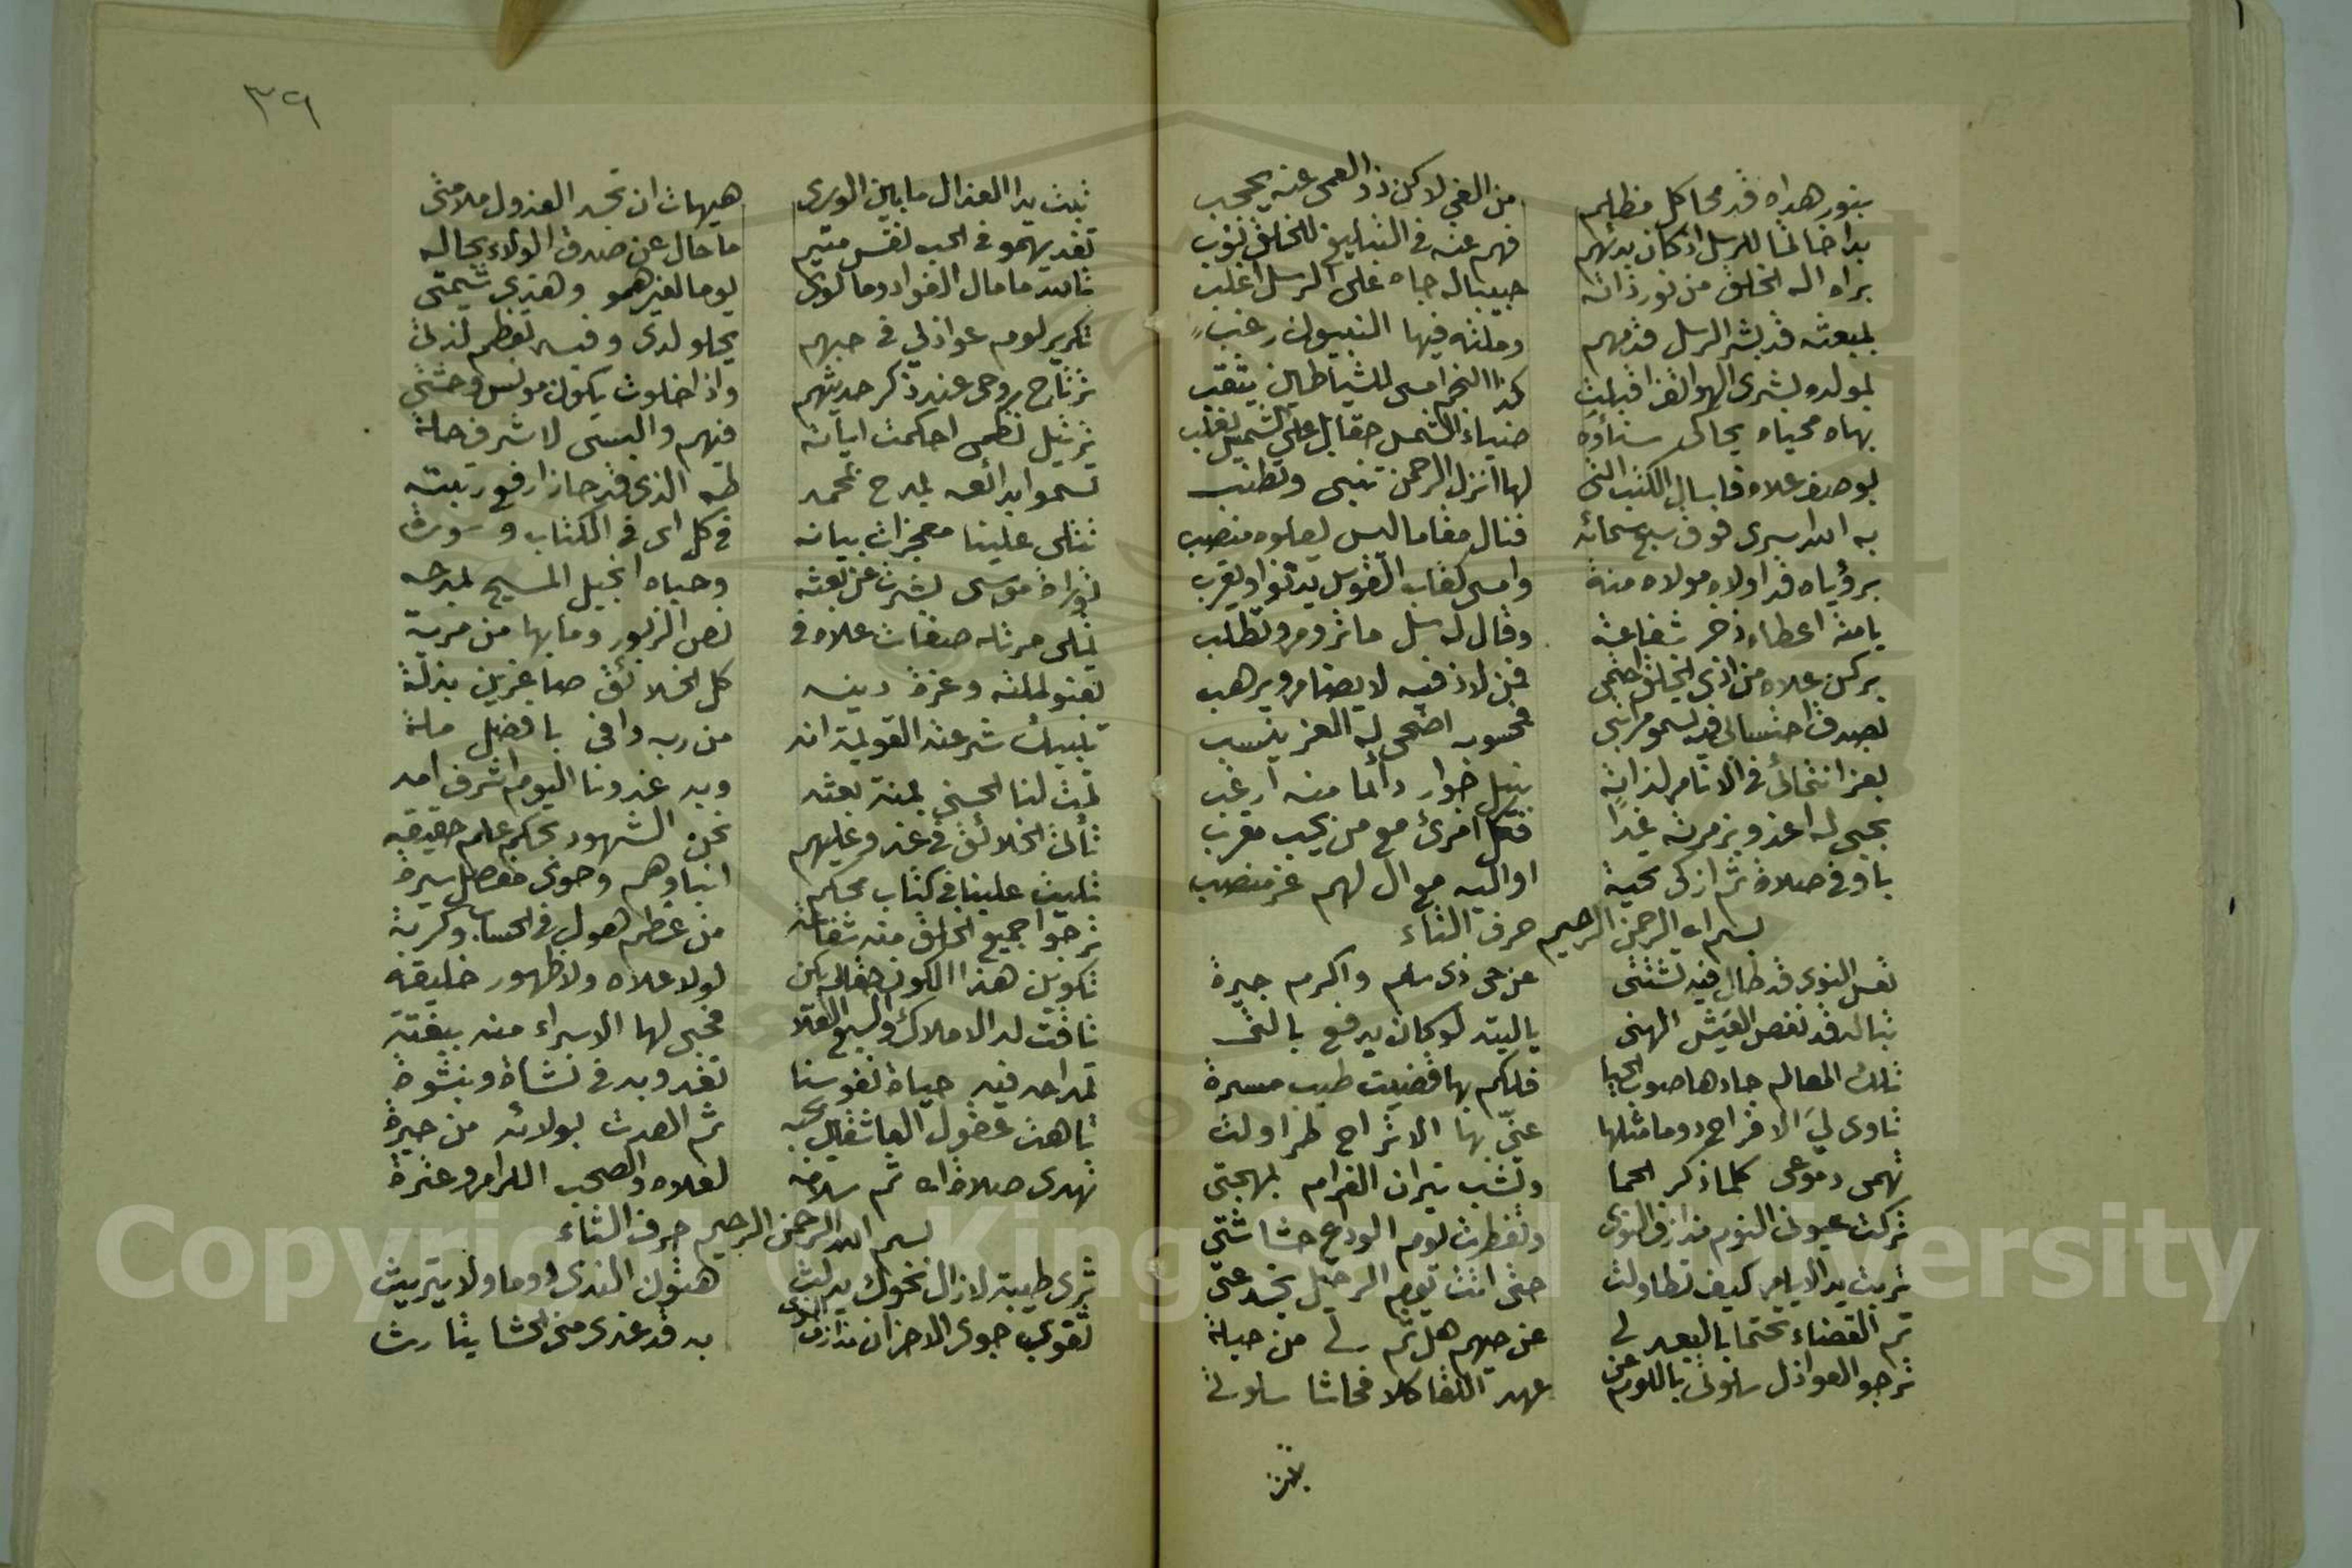 بنور هداه قد محا كل مظلم من الغي لاكن ذو العمى عنه يحجب
بدا خاتما للرسل اذ كان بدئهم فهم عنه في التبليغ للخلق نوب
براه اله الخلق من نور ذاته حبيبا له جاه على الرسل اغلب
لمبعثه قد بشر الرسل قومهم وملته فيها النبيون رغب
لمولده بشرى الهواتف اقبلت كذا النجم امسى للشياطين يثقب
بهاه محياه يحاكى سناؤه ضياء الشمس
بوصف علاه في الكتب التى لها انزل الرحمن تنبى وتطنب
به الله اسرى فوق سبع سمائه فنال مقاما ليس يعلوه منصب
برؤياه قد اولاه مولاه منة وامسى كقاب القوس يدنو او يقرب
يامنه اعطاه ذخر شفاعة وقال له سل ما تروم وتطلب
بركن علاه من اذى الخلق احتمى فمن لاذ فيه لا يضام ويرهب
بصدق احتسابي قد يسمو مراتبى فمحسوبه اضحى له العز ينسب
بعز انتمائى في الانام لذاته بنيل جوار دائما منه ارغب
بحبى له اغدو بزمرته غدا فكل امرئ مع من يحب مقرب
باوفى صلاة ثم ازكى تحية اواليه مع ال لهم عز منصب
بسم الله الرحمن الرحيم حرف التاء
تعس النوى قد طال فيه تشتتى عن حى ذى سلم واكرم جيرة
تبا له قد نغص العيش الهنى ياليته لو كان يدفع بالتى
تلك المعالم جادها صوب الحيا فلكم بها قضيت طيب مسرة
بها الاتراح طرا ولت
تهمى دموعى كلما ذكر الحما وتشب نيران الغرام بمهجتى
تركت عيونى النوم مذ ازف النوى وتفطرت يوم الوداع حشاشتى
تربت يد الايام كيف تطاولت حتى اتت يوم الرحيل
تم القضاء تحتما بالبعد لى عن حيهم هل ثم لى من حيلة
ترجو العواذل سلوتى باللوم عن عهد اللقا كلا فحاشا سلوتى
تبت
٣٩
تبت يدا العذال ما بين الورى هيهات ان تجد العذول ملامتى
تفديهمو في الحب نفس متيم ما حال عن صدق الولاء بحاله
تالله ما مال الفؤاد وما لوى يوما لغيرهمو وهذى شيمتى
تكرير لوم عواذلي في حبهم يحلو لدى وفيه تعظم لذتى
ترتاح روحى عند ذكر حديثهم واذا خلوت يكون مونس وحشتى
ترتيل نظمى احكمت اياته فيهم والبستى لاشرف حلة
تسموا بدائعه بمدح محمد طه الذى قد حاز ارفع رتبته
تتلى علينا معجزات بيانه في كل اى في الكتاب وسورة
توراة موسى بشرت عن بعثه وحباه انجيل المسيح بمدحه
تتلى مرتله صفات علاه في نص الزبور وما بها من مرية
تعنو لملته وعزة دينه كل الخلائق صاغرين بذلة
تلبيك شرعته القويمة انه من ربه وافى بافضل ملة
تمت لنا الحسنى بمنة بعثه وبه غدونا اليوم اشرف امه
تأتى الخلائق في غد وعليهم نحن الشهود بحكم علم حقيقه
تليت علينا في كتاب محكم انباؤهم وحوى مفصل سيرة
ترجوا جميع الخلق منه شفاعة من عظم هول في الحساب وكربة
تكوين هذا الكون حقا لم يكن لولا علاه ولا ظهور خليقه
تاقت له الاملاك والسبع العلا فحبى لها الاسراء منه ببغتة
تمداحه فيه حياة نفوسنا تغدو به في نشاة وبنشوة
تاهت عقول العاشقين بحبه ثم اهتدت بولائه من حيرة
تهدى صلاة الله ثم سلامه لعلاه والصحب الكرام وعترة
بسم الله الرحمن الرحيم حرف الثاء
ثرى طيبة لازال نحوك يدلث هتون الندى دوما ولا يتريث
ثقوى جوى الاحزان مذ ازف النوى به قد غدى من الحشا يتارث